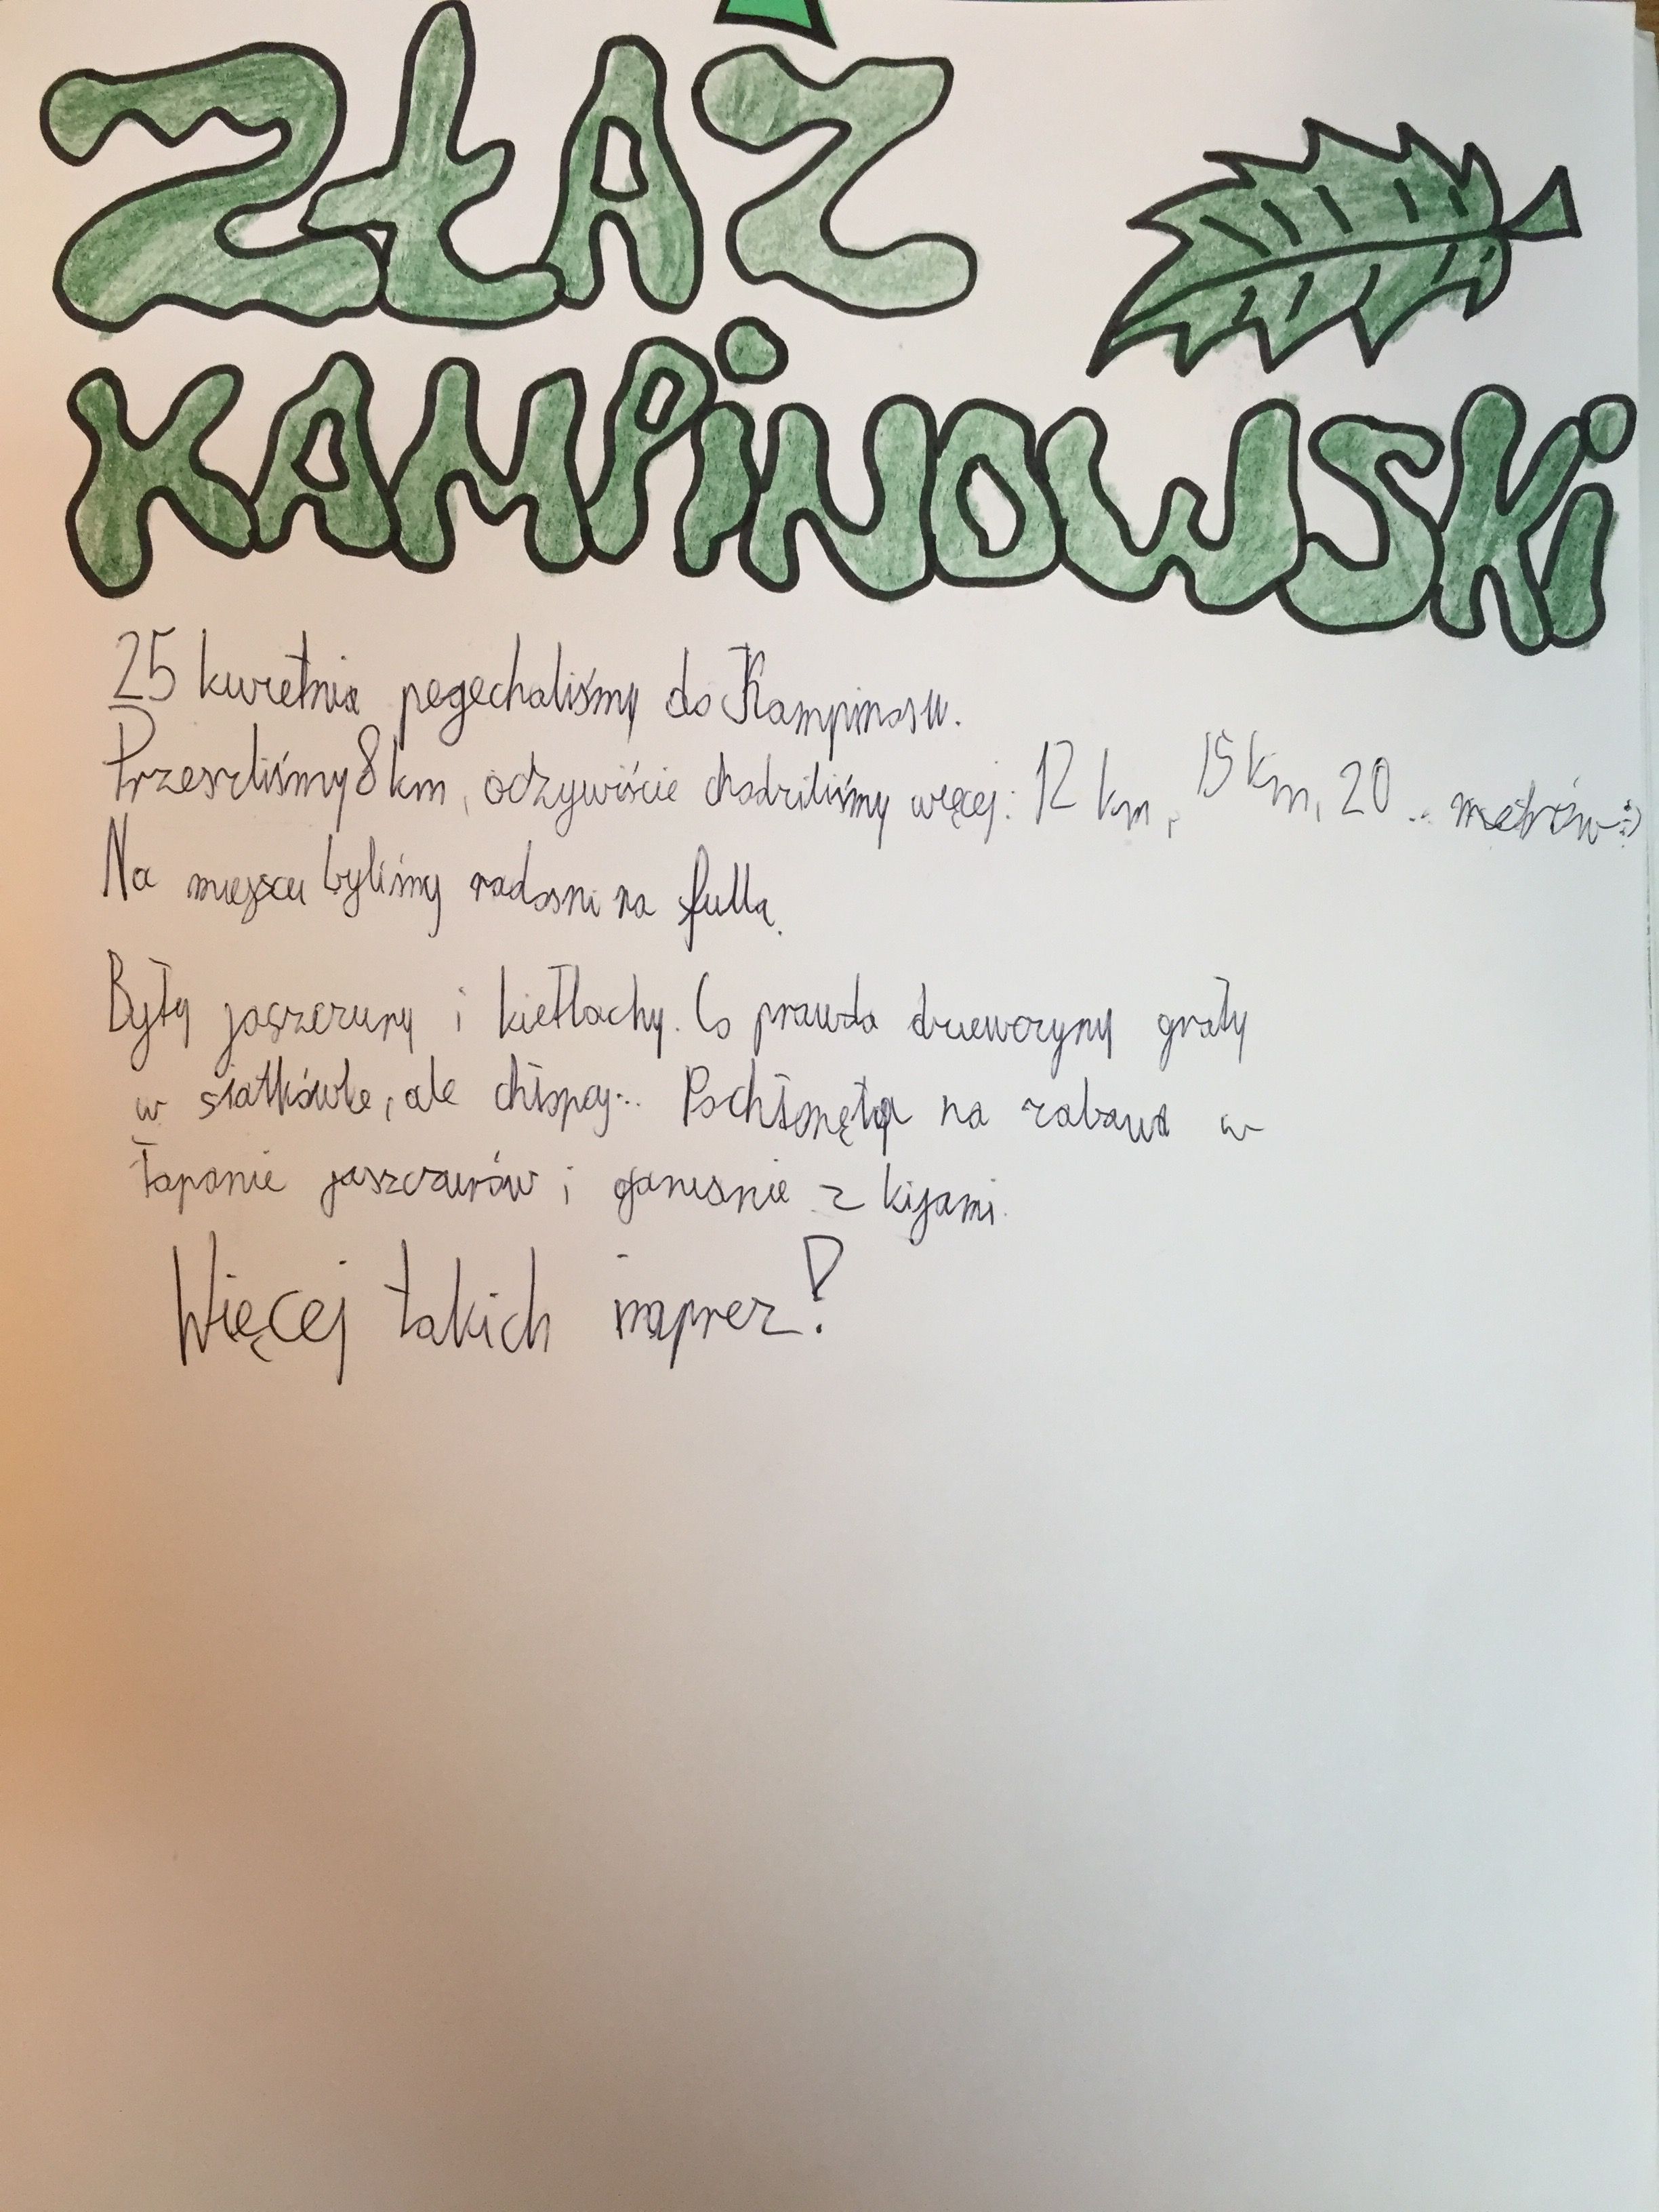 ZŁAZ
KAMPiNOWSKi
25 kwietnia pojechaliśmy do Kampinosu.
Przeszliśmy 8 km, oczywiście chodziliśmy więcej: 12 km, 15 km, 20... metrów:)
Na miejscu byliśmy radośni na fulla.
Były jaszczury i kiełbachy. Co prawda dziewczyny grały
w siatkówkę, ale chłopcy... Pochłonęła na zabawa w
łapanie jaszczurów i ganianie z kijami.
Więcej takich imprez!